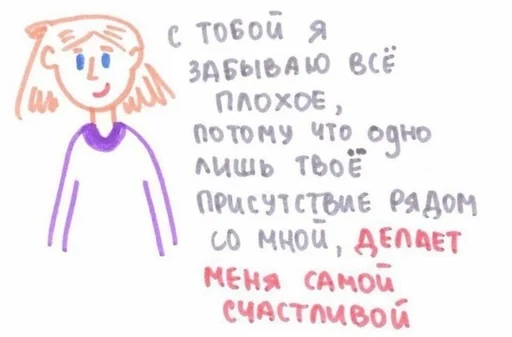 С ТОБОЙ Я
ЗАБЫВАЮ ВСЁ
ПЛОХОЕ,
ПОТОМУ ЧТО ОДНО
ЛИШЬ ТВОЁ
ПРИСУТСТВИЕ РЯДОМ
СО МНОЙ, ДЕЛАЕТ
МЕНЯ САМОЙ
СЧАСТЛИВОЙ